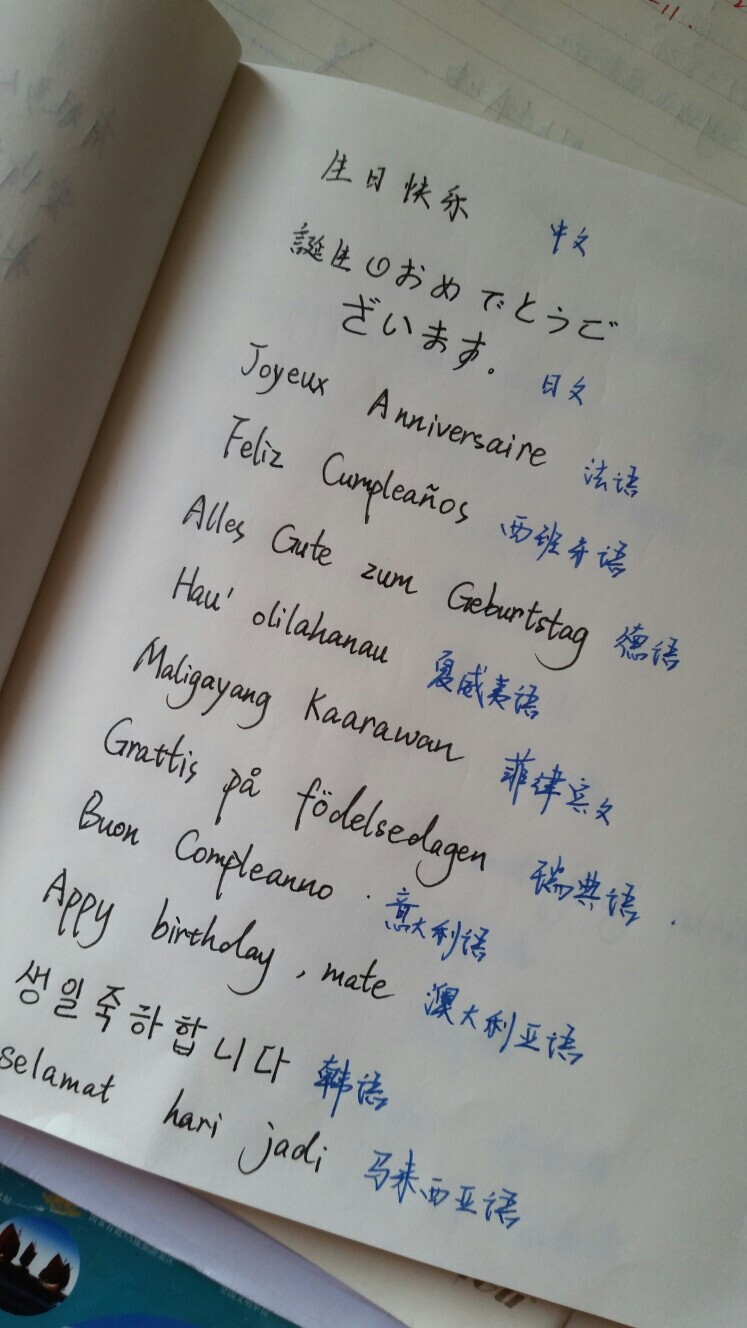 生日快乐 中文
誕生日おめでとうご
ざいます。 日文
Joyeux Anniversaire 法语
Feliz Cumpleaños 西班牙语
Alles Gute zum Geburtstag 德语
Hau' olilahanau 夏威夷语
Maligayang Kaarawan 菲律宾文
Grattis på födelsedagen 瑞典语.
Buon Compleanno. 意大利语
Appy birthday, mate 澳大利亚语
생일축하합니다 韩语
selamat hari jadi 马来西亚语